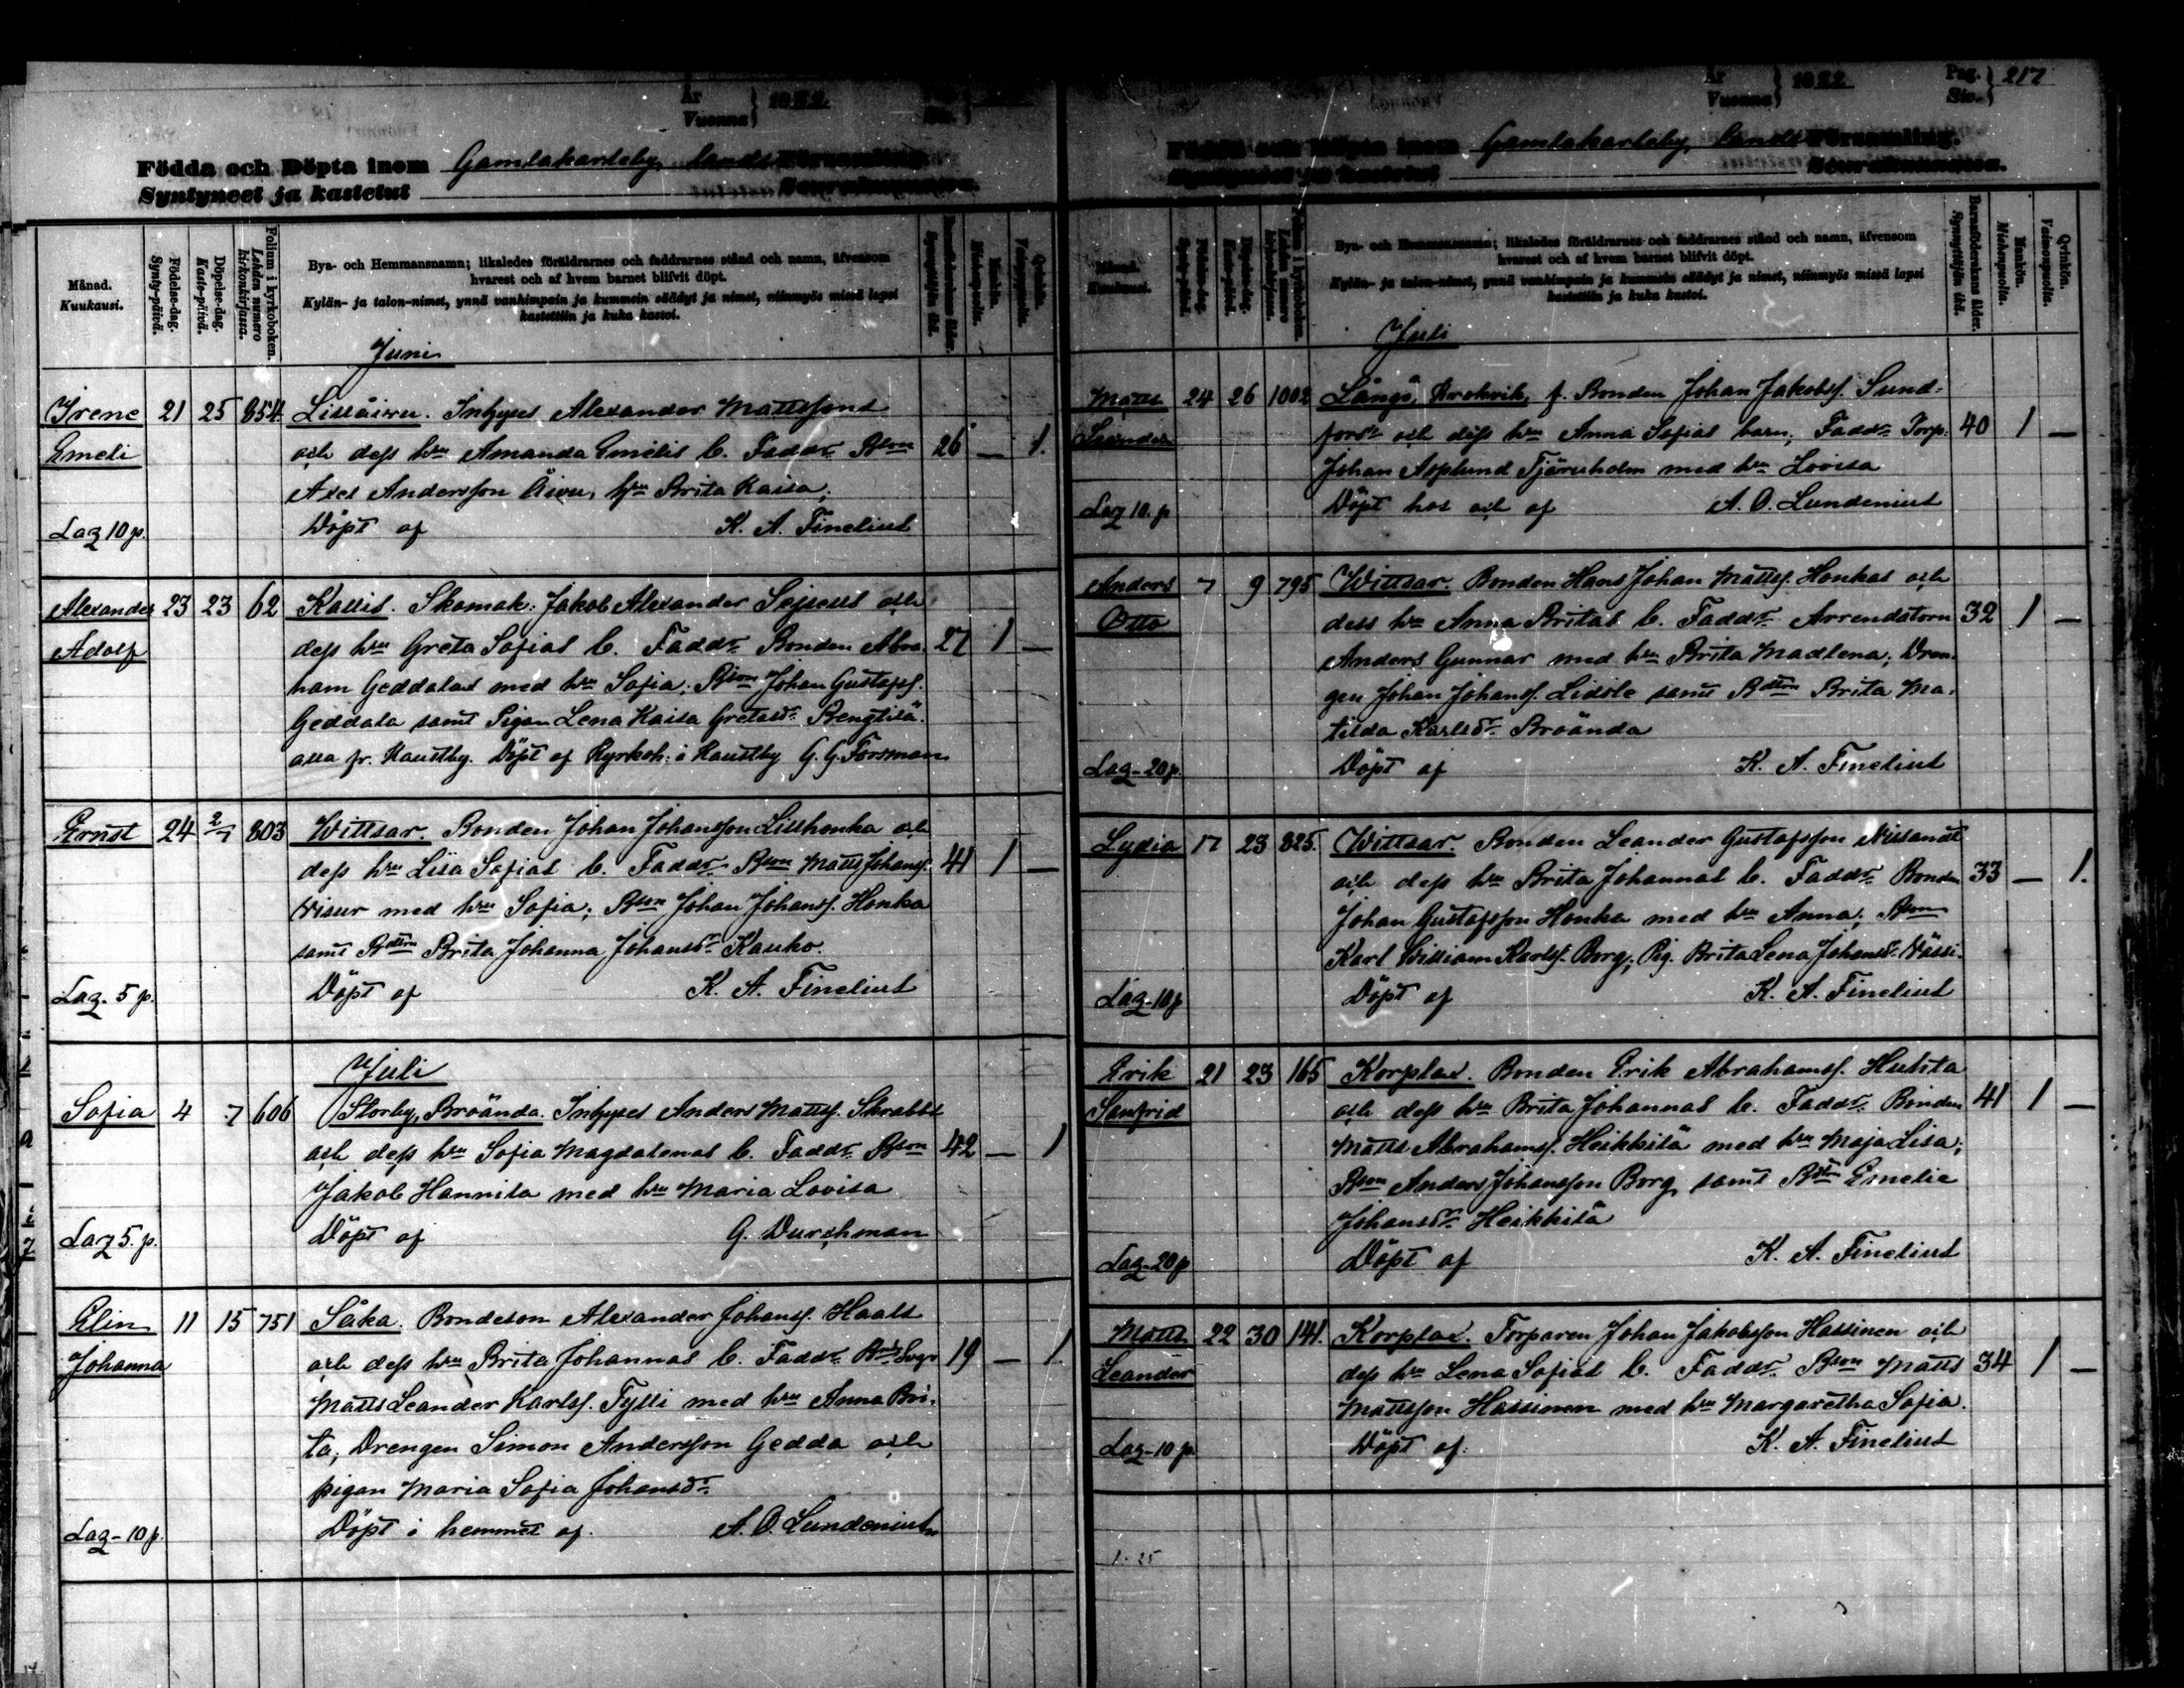 År
Vuonna } 1822
Födda och Döpta inom Gamlakarleby lands Församling.
Syntyneet ja kastetut Seurakunnassa.
Månad.
Kuukausi.
Födelse-dag.
Synty-päivä.
Döpelse-dag.
Kaste-päivä.
Folium i kyrkoboken.
Lehden numero kirkonkirjassa.
Bya- och Hemmansnamn; likaledes föräldrarnes och faddrarnes stånd och namn, äfvensom
hvarest och af hvem barnet blifvit döpt.
Kylän- ja talon-nimet, ynnä vanhimpain ja kummein säädyt ja nimet, niinmyös missä lapsi
kastettiin ja kuka kastoi.
Juni
Irene 21 25 854 Lissäiwu. Inhyses Alexander Mattssons
Emeli och dess hru Amanda Emelis b. Faddr Bson 26 — 1.
Axel Andersson Äivu, hru Brita Kaisa;
Lag 10 p. Döpt af K. A. Finelius
Alexander 23 23 62 Kallis. Skomak: Jakob Alexander och
Adolf dess hru Greta Sofias b. Faddr Bonden Abra- 27 1 —
ham Geddalas med hru Sofia; Bson Johan Gustafss.
Geddala samt Pigan Lena Kaisa Gretasdr
alla fr. Kaustby. Döpt af Kyrkoh: i Kaustby G. G. Forsman
Ernst 24 2/7 803 Wittsar. Bonden Johan Johansson Lillhonka och
dess hru Lisa Sofias b. Faddr Bson Matts Johanss. 41 1 —
Visur med hru Sofia; Bson Johan Johanss. Honka
samt Bdtrn Brita Johanna Johansdr Kauko.
Lag. 5 p. Döpt af K. A. Finelius
Juli
Sofia 4 7 606 Storby, Broända. Inhyses Anders Mattss. Skrabbs
och dess hru Sofia Magdalenas b. Faddr Bson 42 — 1
Jakob Hannila med hru Maria Lovisa
Lag 5. p. Döpt af G. Durchman
Elin 11 15 751 Såka. Bondeson Alexander Johanss. Haals
Johanna och dess hru Brita Johannas b. Faddr 19 — 1.
Matts Leander Karlss. Tylli med hru Anna Bri-
ta; Drengen Simon Andersson Gedda och
pigan Maria Sofia Johansdr
Lag - 10 p. Döpt i hemmet af A. O. Lundenius
År
Vuonna } 1822 Pag.
Siv. } 217
Födda och Döpta inom Gamlakarleby Lands Församling.
Syntyneet ja kastetut Seurakunnassa.
Månad.
Kuukausi.
Bya- och Hemmansnamn; likaledes föräldrarnes och faddrarnes stånd och namn, äfvensom
hvarest och af hvem barnet blifvit döpt.
Kylän- ja talon-nimet, ynnä vanhimpain ja kummein säädyt ja nimet, niinmyös missä lapsi
kastettiin ja kuka kastoi.
Barnaföderskans ålder.
Synnyttäjän ikä.
Mankön.
Miehenpuolta.
Qvinkön.
Vaimonpuolta.
Juli
Matts 24 26 1002 Långö, Krokvik, f. Bonden Johan Jakobss. Sund-
Leander fors och dess hru Anna Sofias barn; Faddr Torp: 40 1 —
Johan Asplund Tjäruholm med hru Lovisa
Lag 10. p Döpt hos och af A. O. Lundenius
Anders 7 9 795 Wittsar. Bonden Hans Johan Mattss. Honkas och
Otto dess hru Anna Britas b. Faddr Arrendatorn 32 1 —
Anders Gunnar med hru Brita Madlena; Dren-
gen Johan Johanss. samt Bdtrn Brita Ma-
tilda Karlsdr Broända
Lag - 20 p. Döpt af K. A. Finelius
Lydia 17 23 825. Wittsar. Bonden Leander Gustafsson
och dess hru Brita Johannas b. Faddr Bonden 33 — 1.
Johan Gustafsson Honka med hru Anna; Bson
Karl William Karlss. Borg; Pig. Brita Lena Johansdr
Lag - 10 p Döpt af K. A. Finelius
Erik 21 23 165 Korplax. Bonden Erik Abrahamss. Huhta
Sanfrid och dess hru Brita Johannas b. Faddr Bonden 41 1 —
Matts Abrahamss. Heikkilä med hru Maja Lisa;
Bson Anders Johansson Borg samt Bdtr Emelie
Johansdr Heikkilä
Lag - 20 p Döpt af K. A. Finelius
Matts 22 30 141. Korplax. Torparen Johan Jakobsson Hassinen och
Leander dess hru Lena Sofias b. Faddr Bson Matts 34 1 —
Mattsson Hassinen med hru Margaretha Sofia.
Lag - 10 p. Döpt af. K. A. Finelius
1.25